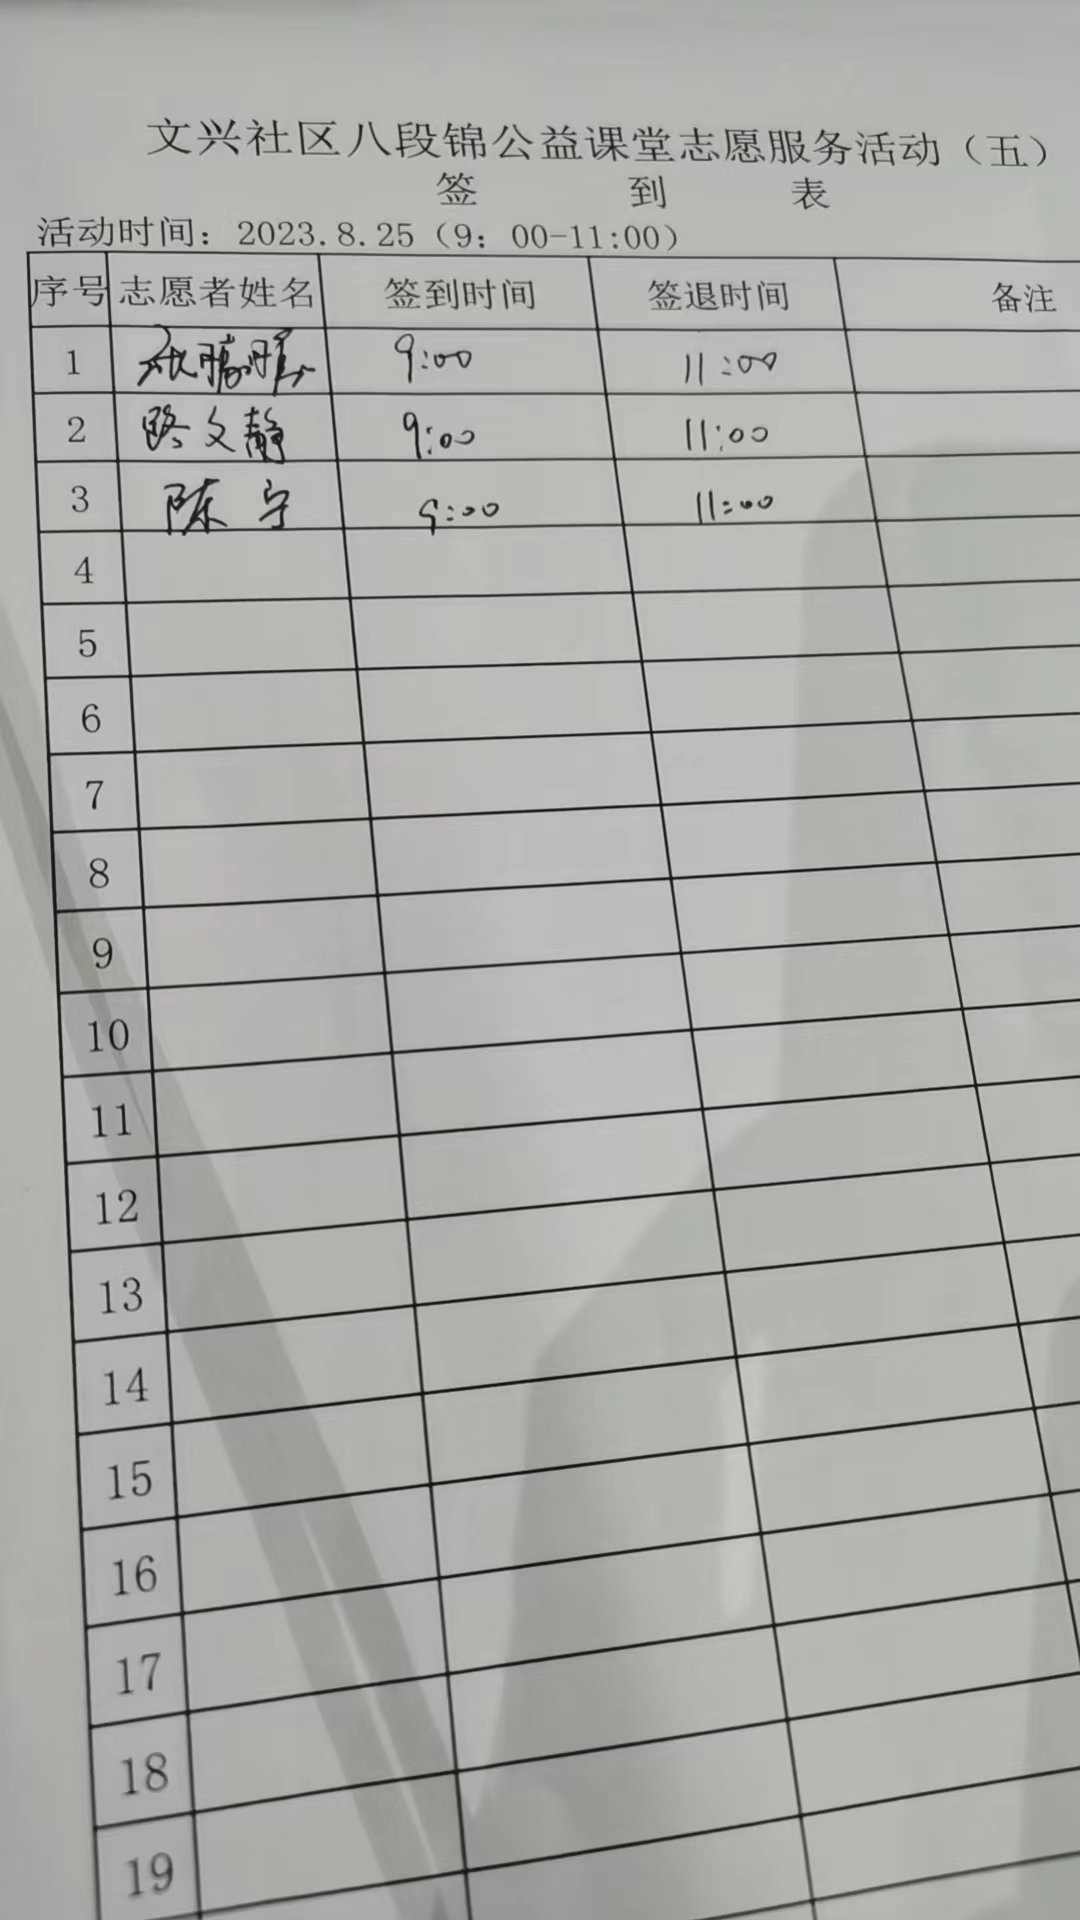 文兴社区八段锦公益课堂志愿服务活动（五）
签 到 表
活动时间：2023.8.25（9：00-11:00）
序号 志愿者姓名 签到时间 签退时间 备注
1 9:00 11:00
2 路文静 9:00 11:00
3 陈宁 9:00 11:00
4
5
6
7
8
9
10
11
12
13
14
15
16
17
18
19